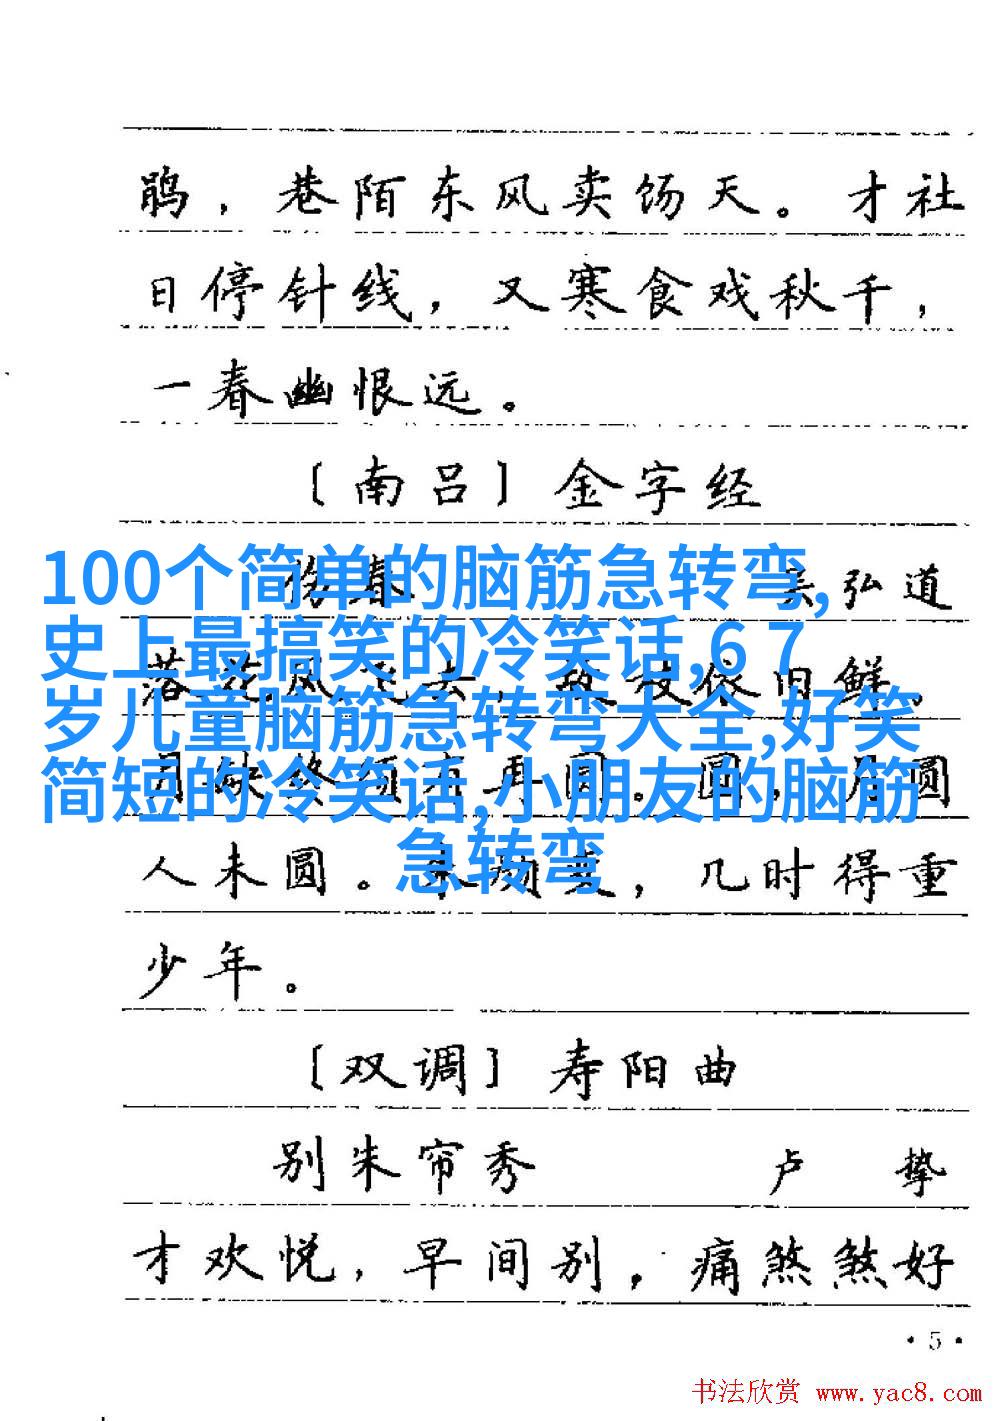 鹃，巷陌东风卖饧天。才社
日停针线，又寒食戏秋千，
一春幽恨远。
〔南吕〕金字经
伤春 吴弘道
落花风飞去，故枝依旧鲜。
月缺终须有再圆。圆，月圆
人未圆。朱颜变，几时得重
少年。
〔双调〕寿阳曲
别朱帘秀 卢挚
才欢悦，早间别，痛煞煞好
·5·
100个简单的脑筋急转弯,
史上最搞笑的冷笑话,6 7
岁儿童脑筋急转弯大全,好笑
简短的冷笑话,小朋友的脑筋
急转弯
书法欣赏 www.yac8.com